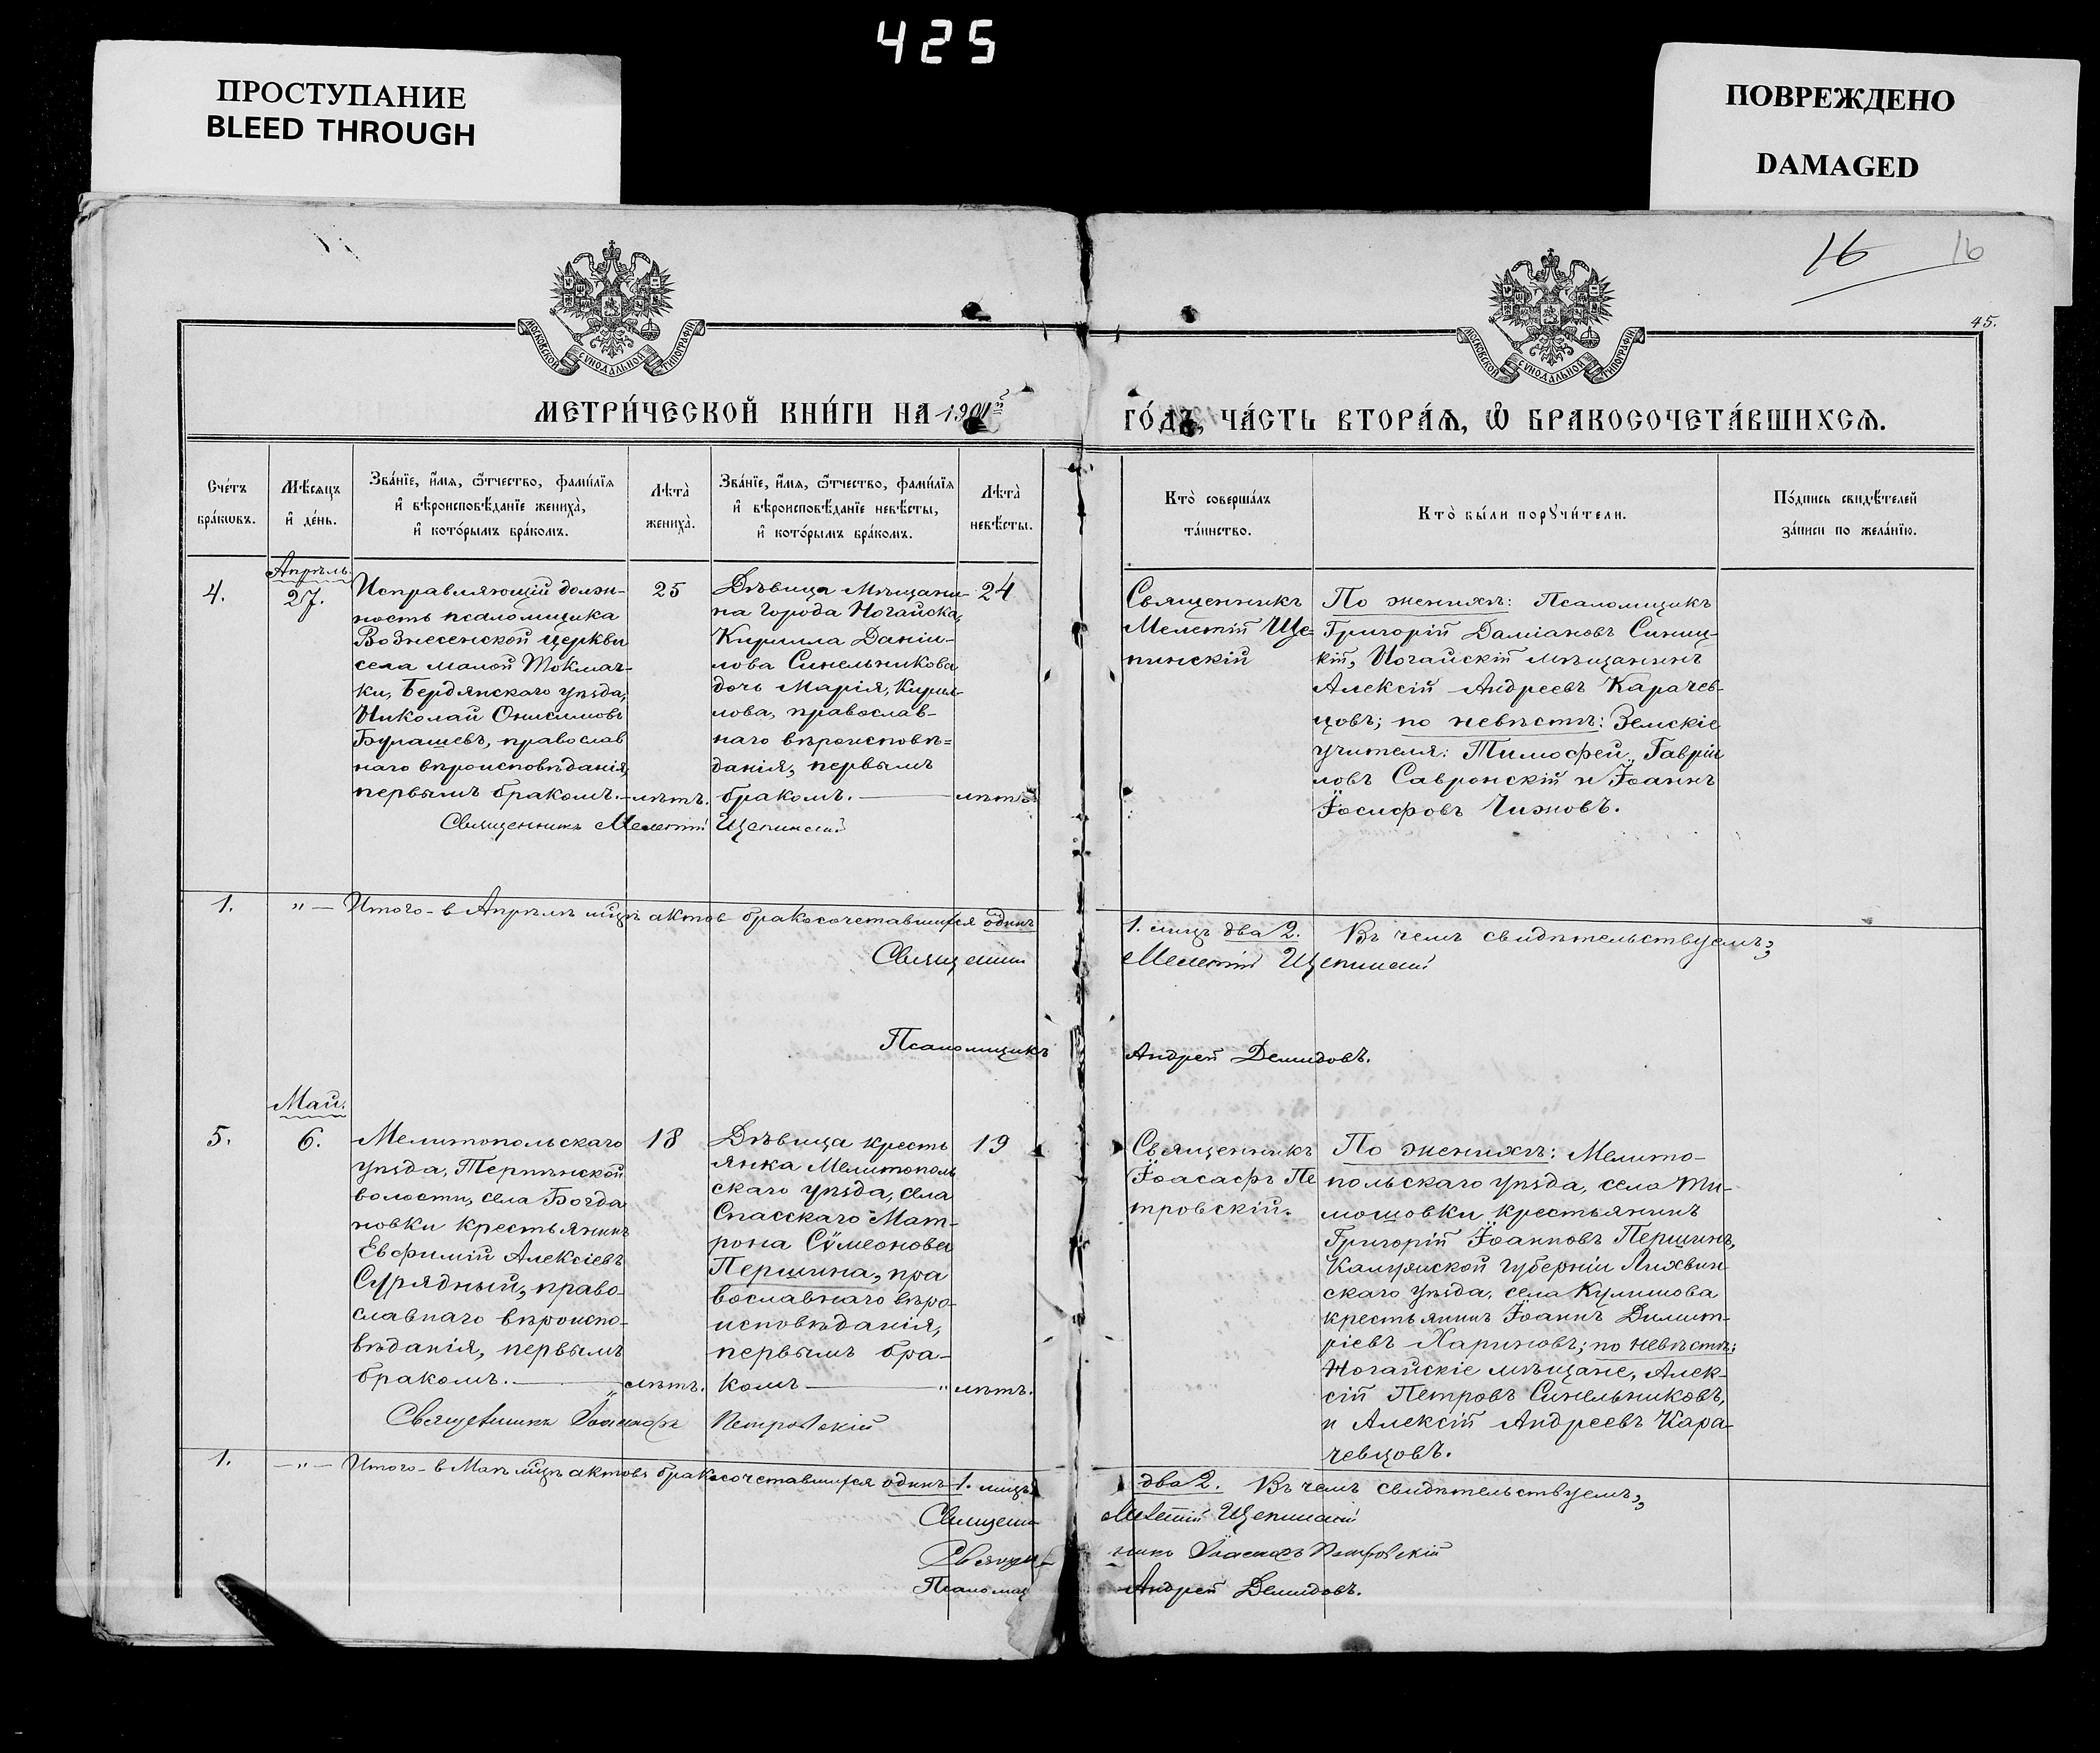 425
ПРОСТУПАНИЕ
BLEED THROUGH
ПОВРЕЖДЕНО
DAMAGED
16
16
45.
МОСКОВСКОЙ СѴНОДАЛЬНОЙ ТИПОГРАФІИ
МОСКОВСКОЙ СѴНОДАЛЬНОЙ ТИПОГРАФІИ
МЕТРИ́ЧЕСКОЙ КНИ́ГИ НА 1901й
ГО́ДЪ, ЧА́СТЬ ВТОРА́Ѧ, Ѽ БРАКОСОЧЕТА́ВШИХСѦ.
Сче́тъ
бра́кѡвъ.
Мѣ́сяцъ
и҆ де́нь.
Зва́нїе, и҆́мѧ, ѻ҆́тчество, фами́лїѧ
и҆ вѣроисповѣ́данїе жениха̀,
и҆ кото́рымъ бра́комъ.
Лѣта̀
жениха̀.
Зва́нїе, и҆́мѧ, ѻ҆́тчество, фами́лїѧ
и҆ вѣроисповѣ́данїе невѣ́сты,
и҆ кото́рымъ бра́комъ.
Лѣта̀
невѣ́сты.
Кто̀ соверша́лъ
та́инство.
Кто̀ бы́ли порꙋчи́тели.
По́дпись свидѣ́телей
за́писи по жела́нїю.
4.
Апрѣль.
27.
Исправляющій долж-
ность псаломщика
Вознесенской церкви
села малой Токмач-
ки, Бердянскаго уѣзда,
Николай Онисимовъ
Бурашевъ, православ
наго вѣроисповѣданія,
первымъ бракомъ.
25
лѣтъ.
Дѣвица Мѣщани-
на города Ногайска,
Кирилла Даніи-
лова Синельникова
дочь Марія, Кирил-
лова, православ-
наго вѣроисповѣ=
данія, первымъ
бракомъ.
24
лѣтъ
Священникъ Мелетій Щепинскій
Священникъ
Мелетій Ще=
пинскій
По женихѣ: Псаломщикъ
Григорій Даміановъ Синиц-
кій, Ногайскій мѣщанинъ
Алексій Андреевъ Карачев-
цовъ; по невѣстѣ: Земскіе
учителя: Тимофей Гавріи
ловъ Савронскій и Іоаннъ
Іосифовъ Чижовъ.
1. " — Итого в Апрѣлѣ мцѣ актов бракосочетавшихся одинъ
1. лицъ два 2. Въ чемъ свидѣтельствуемъ,,
Священник
Мелетій Щепинскій
Псаломщикъ
Андрей Демидовъ.
5.
Май.
6.
Мелитопольскаго
уѣзда, Терпѣнской
волости, села Богда
новки крестьянинъ
Евфимій Алексіевъ
Сурядный, право-
славнаго вѣроиспо-
вѣданія, первымъ
бракомъ.
18
лѣтъ.
Дѣвица кресть
янка Мелитополь
скаго уѣзда, села
Спасскаго Мат-
рона Сѵмеонова
Першина, пра
вославнаго вѣро-
исповѣданія,
первымъ бра-
комъ
19
лѣтъ.
Священникъ Іоасафъ Петровскій
Священникъ
Іоасафъ Пе
тровскій.
По женихѣ: Мелито-
польскаго уѣзда, села Ти-
мошовки крестьянинъ
Григорій Іоанновъ Першинъ,
Калужской губерніи Лихвин
скаго уѣзда, села Кулишова
крестьянинъ Іоаннъ Димит-
ріевъ Хариновъ; по невѣстѣ:
Ногайскіе мѣщане, Алек-
сій Петровъ Синельниковъ,
и Алексій Андреевъ Кара-
чевцовъ.
1. — " — Итого в Маѣ мцѣ актовъ бракосочетавшихся одинъ 1. лицъ
два 2. Въ чемъ свидѣтельствуемъ,,
Священ
Мелетій Щепинскій
Священ
никъ Іоасафъ Петровскій
Псаломщ
Андрей Демидовъ.